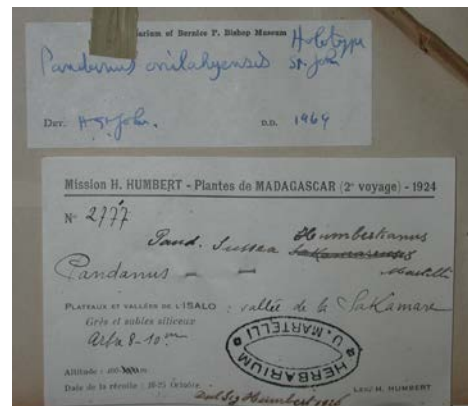 arium of Bernice P. Bishop Museum
Holotype
Pandanus onilahyensis St. John
Det. H. St. John. D.D. 1964
Mission H. HUMBERT - Plantes de MADAGASCAR (2e voyage) - 1924
No 2777
Pand. Humbertianus
Pandanus — — Martelli
PLATEAUX ET VALLÉES DE L'ISALO : vallée de la Sakamare
Grès et sables siliceux
Arbre 8-10 m
HERBARIUM U. MARTELLI
Altitude :
Date de la récolte : Octobre. LEG. H. HUMBERT
Humbert